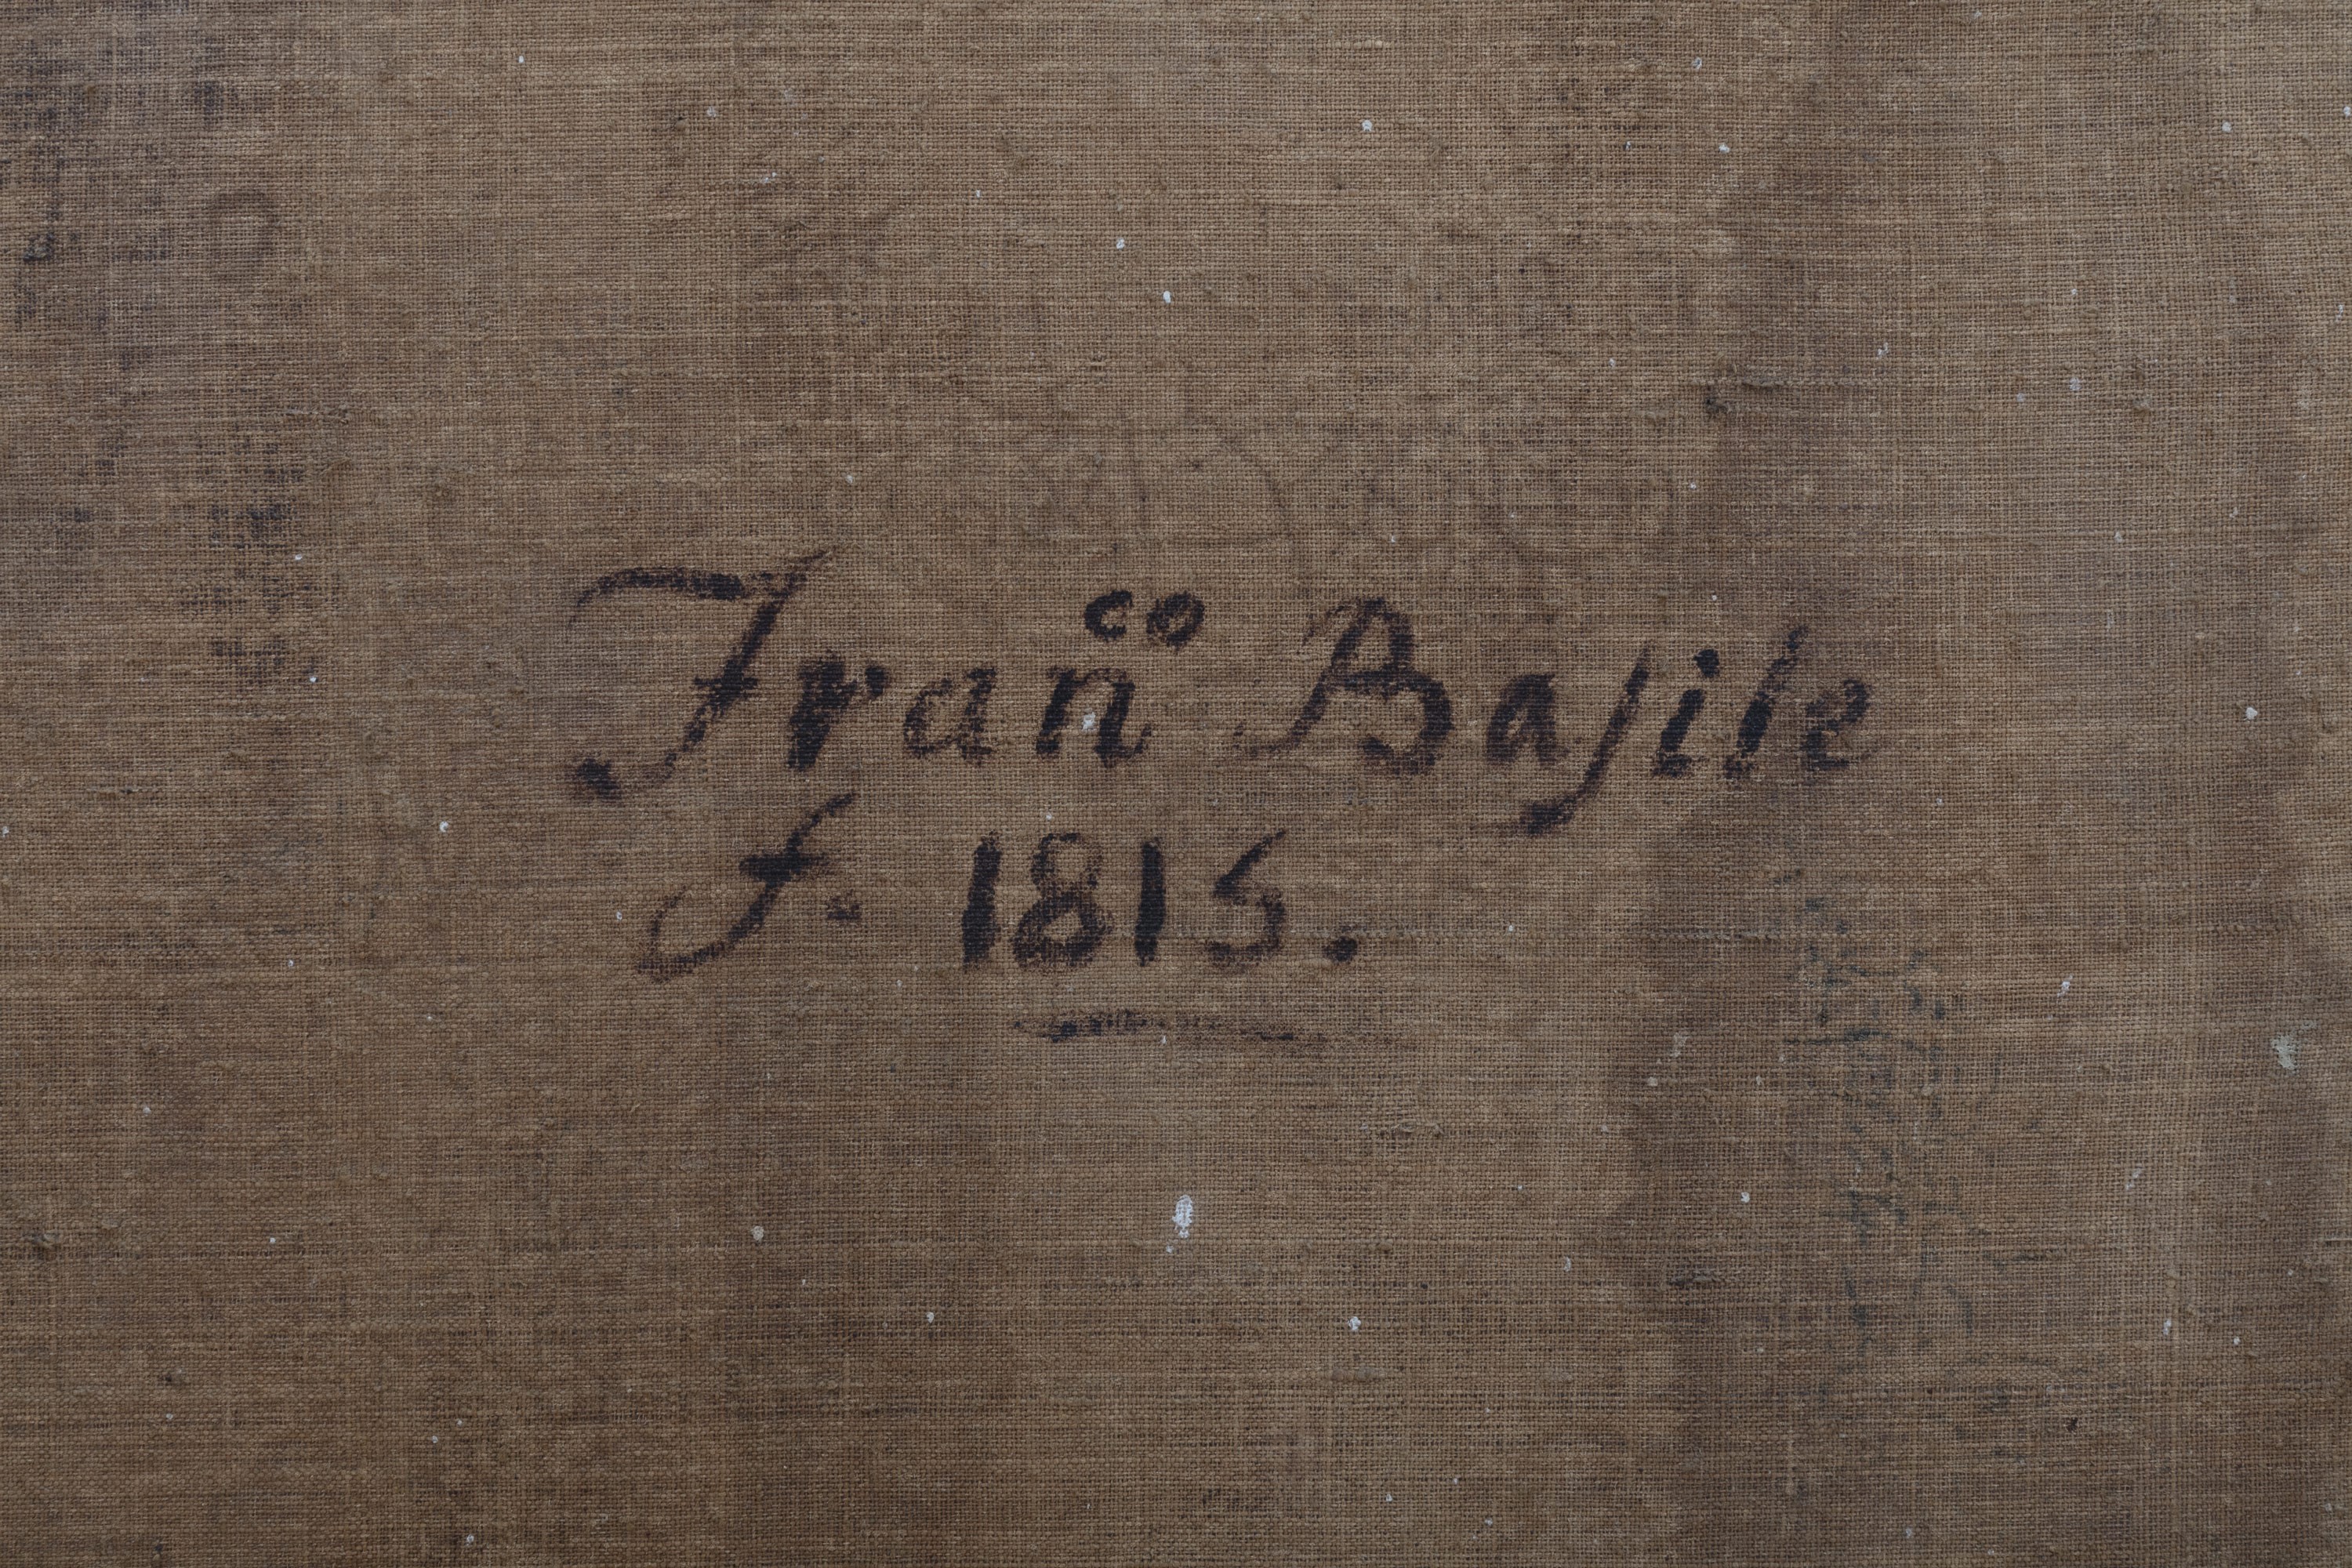 Franco Baſile
f. 1815.